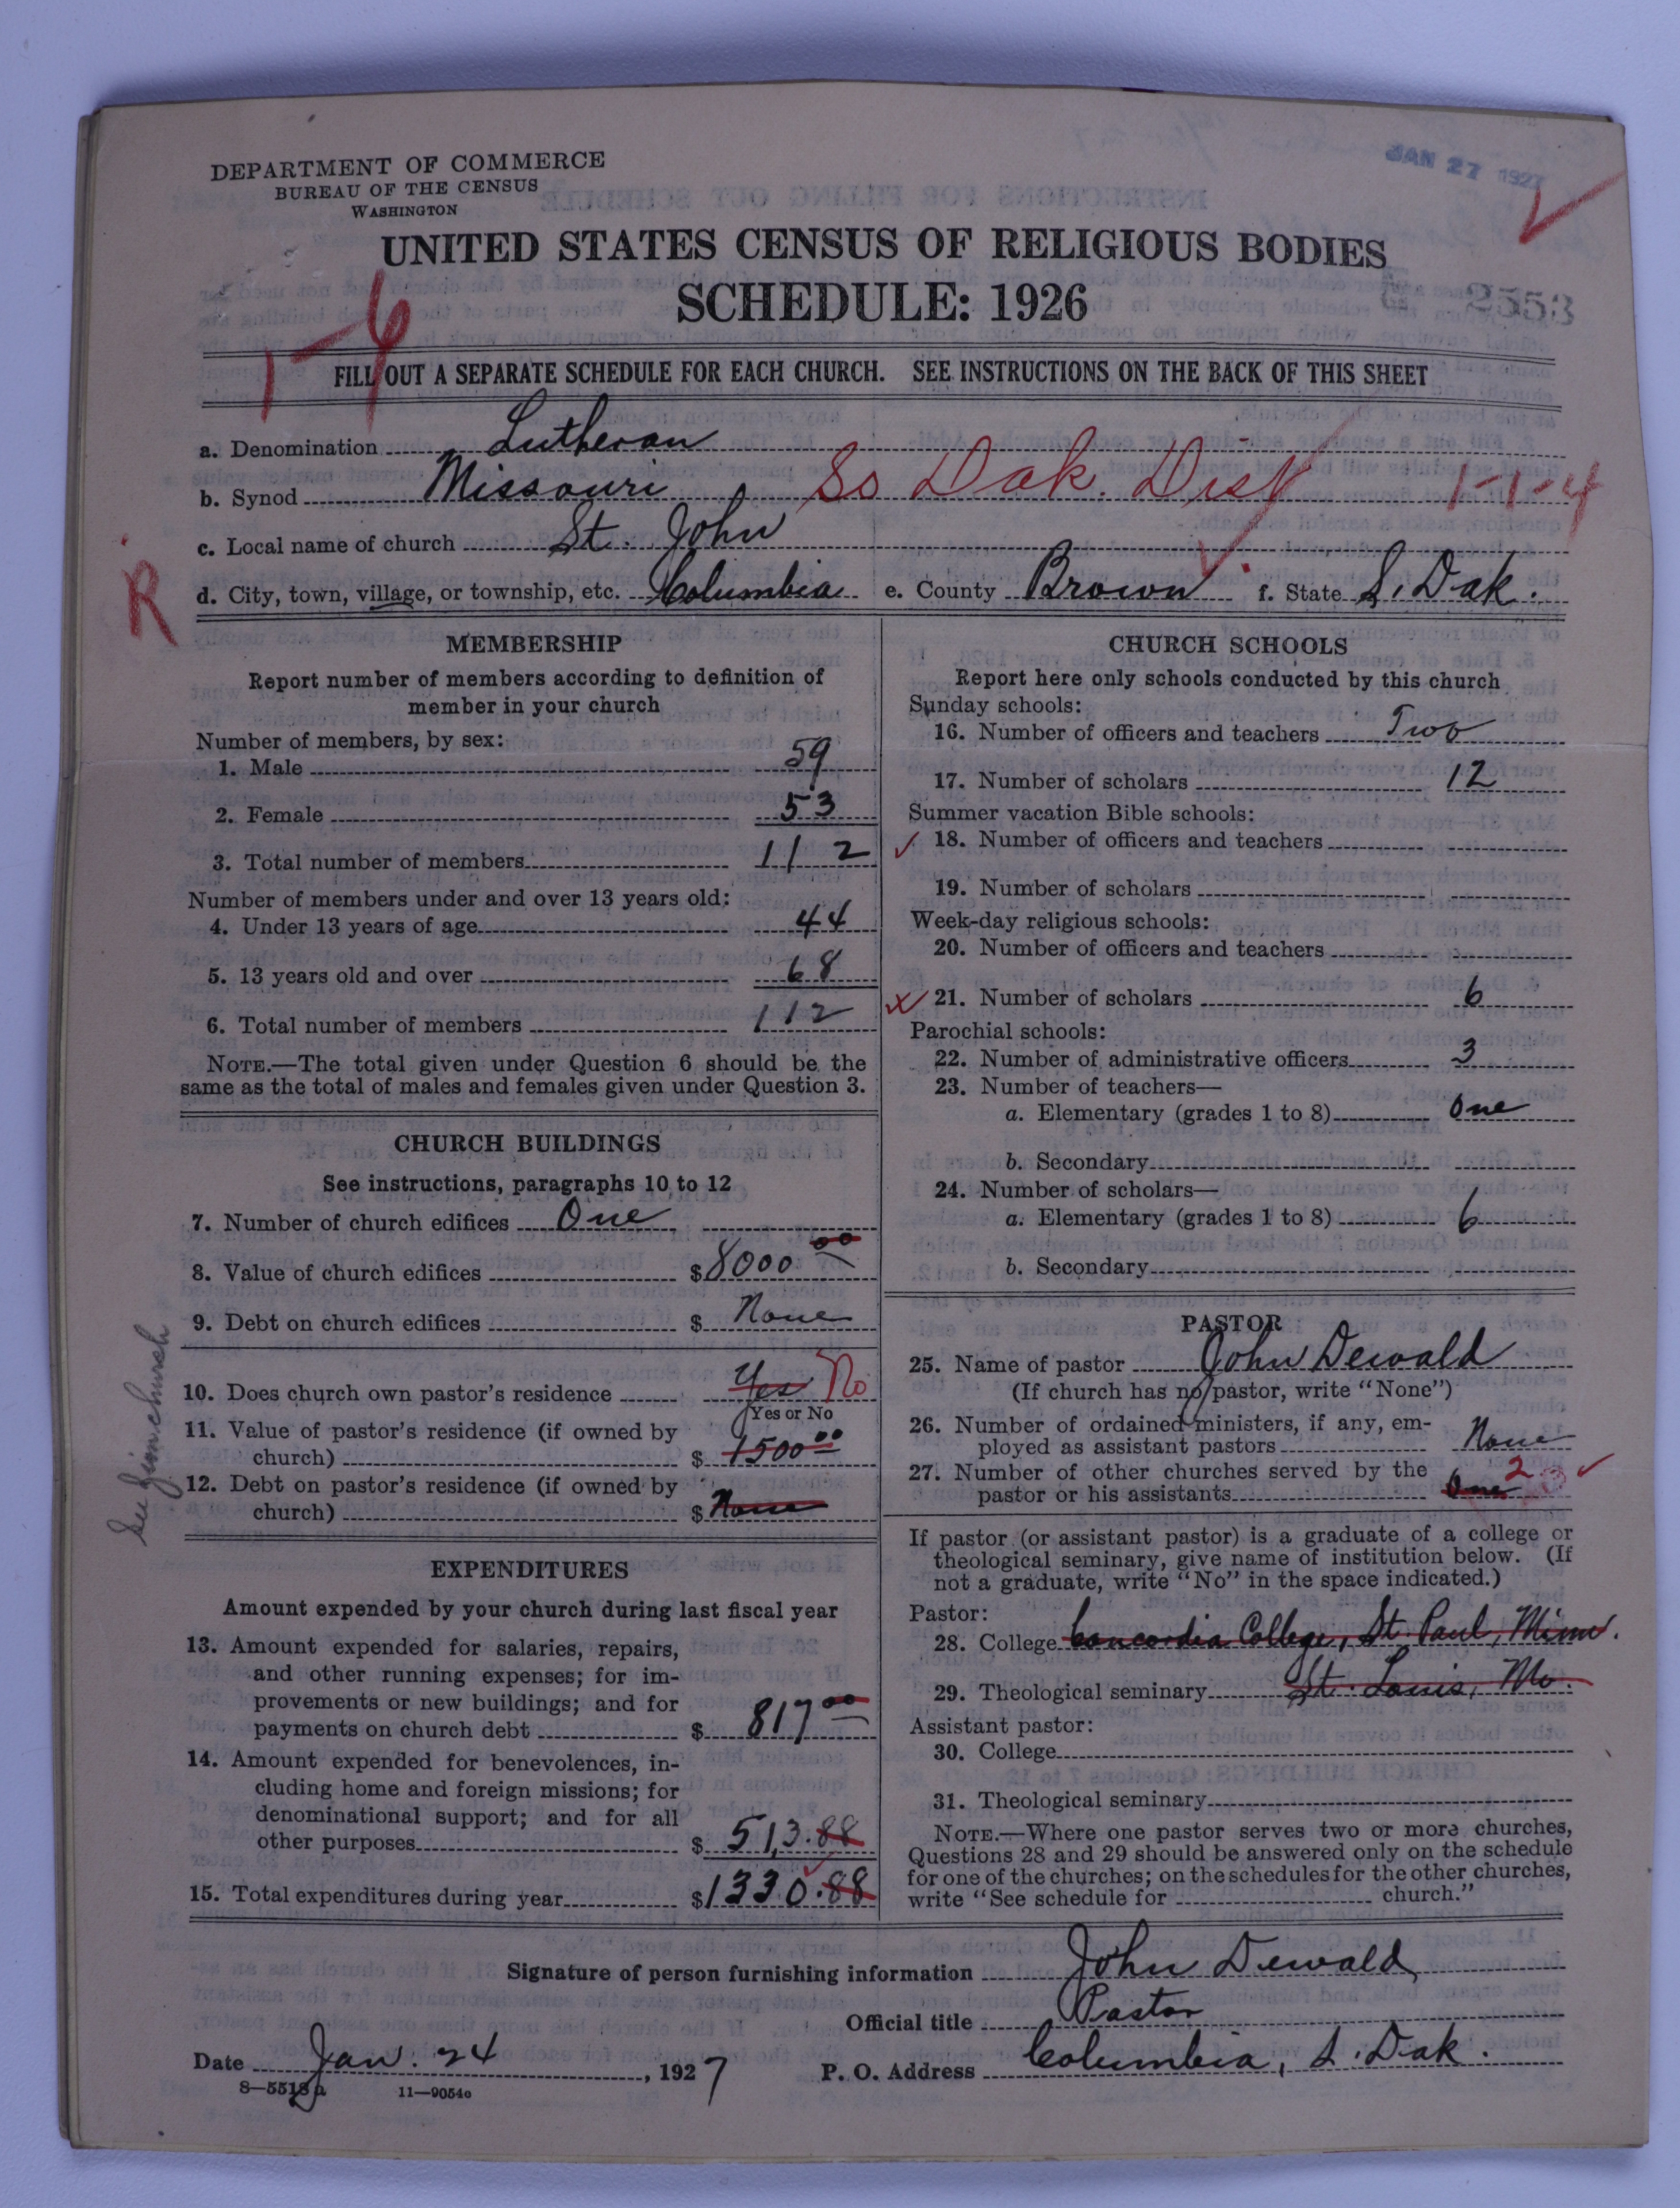 JAN 27 1927
DEPARTMENT OF COMMERCE
BUREAU OF THE CENSUS
WASHINGTON
UNITED STATES CENSUS OF RELIGIOUS BODIES
SCHEDULE: 1926
2553
1-4
FILL OUT A SEPARATE SCHEDULE FOR EACH CHURCH. SEE INSTRUCTIONS ON THE BACK OF THIS SHEET
a. Denomination Lutheran
b. Synod Missouri So Dak. Dist 1-1-4
c. Local name of church St. John
R
d. City, town, village, or township, etc. Columbia e. County Brown f. State S. Dak.
MEMBERSHIP
Report number of members according to definition of
member in your church
Number of members, by sex:
1. Male 59
2. Female 53
3. Total number of members 112
Number of members under and over 13 years old:
4. Under 13 years of age 44
5. 13 years old and over 68
6. Total number of members 112
NOTE.—The total given under Question 6 should be the
same as the total of males and females given under Question 3.
CHURCH BUILDINGS
See instructions, paragraphs 10 to 12
7. Number of church edifices One
8. Value of church edifices $8000 00
9. Debt on church edifices $ None
10. Does church own pastor's residence Yes No
Yes or No
11. Value of pastor's residence (if owned by
church) $ 1500 00
12. Debt on pastor's residence (if owned by
church) $ None
See church
EXPENDITURES
Amount expended by your church during last fiscal year
13. Amount expended for salaries, repairs,
and other running expenses; for im-
provements or new buildings; and for
payments on church debt $ 817 00
14. Amount expended for benevolences, in-
cluding home and foreign missions; for
denominational support; and for all
other purposes $ 513.88
15. Total expenditures during year $1330.88
CHURCH SCHOOLS
Report here only schools conducted by this church
Sunday schools:
16. Number of officers and teachers Two
17. Number of scholars 12
Summer vacation Bible schools:
18. Number of officers and teachers
19. Number of scholars
Week-day religious schools:
20. Number of officers and teachers
21. Number of scholars 6
Parochial schools:
22. Number of administrative officers 3
23. Number of teachers—
a. Elementary (grades 1 to 8) One
b. Secondary
24. Number of scholars—
a. Elementary (grades 1 to 8) 6
b. Secondary
PASTOR
25. Name of pastor John Dewald
(If church has no pastor, write "None")
26. Number of ordained ministers, if any, em-
ployed as assistant pastors None
27. Number of other churches served by the
pastor or his assistants One 2
If pastor (or assistant pastor) is a graduate of a college or
theological seminary, give name of institution below. (If
not a graduate, write "No" in the space indicated.)
Pastor:
28. College Concordia College, St. Paul, Minn.
29. Theological seminary St. Louis, Mo.
Assistant pastor:
30. College
31. Theological seminary
NOTE.—Where one pastor serves two or more churches,
Questions 28 and 29 should be answered only on the schedule
for one of the churches; on the schedules for the other churches,
write "See schedule for church."
Signature of person furnishing information John Dewald
Official title Pastor
Date Jan. 24, 1927 P. O. Address Columbia, S. Dak.
8—5518a 11—9054c